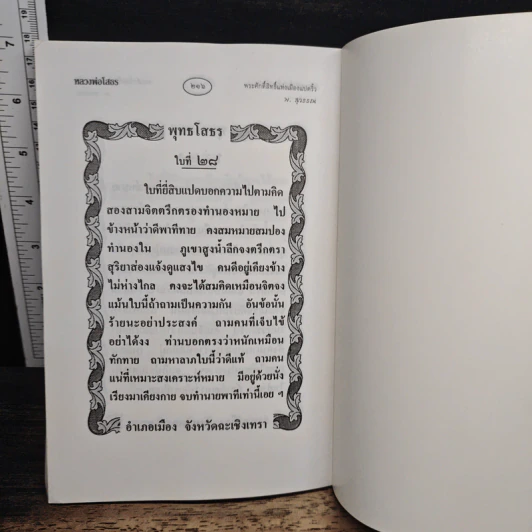 หลวงพ่อโสธร
๒๑๖
พระศักดิ์สิทธิ์แห่งเมืองแปดริ้ว
พ. สุวรรณ
พุทธโสธร
ใบที่ ๒๘
ใบที่ยี่สิบแปดบอกความไปตามคิด
สองสามจิตตรึกตรองทำนองหมาย ไป
ข้างหน้าว่าดีพาทีทาย คงสมหมายสมปอง
ทำนองใน ภูเขาสูงน้ำลึกจงตรึกตรา
สุริยาส่องแจ้งดูแสงไข คนดีอยู่เคียงข้าง
ไม่ห่างไกล คงจะได้สมคิดเหมือนจิตจง
แม้นใบนี้ถ้าถามเป็นความกัน อันข้อนั้น
ร้ายนะอย่าประสงค์ ถามคนที่เจ็บไข้
อย่าได้งง ท่านบอกตรงว่าหนักเหมือน
ทักทาย ถามหาลาภใบนี้ว่าดีแท้ ถามคน
แน่ที่เหมาะสงเคราะห์หมาย มีอยู่ด้วยนั่ง
เรียงมาเคียงกาย จบทำนายพาทีเท่านี้เอย ฯ
อำเภอเมือง จังหวัดฉะเชิงเทรา
5
6
7